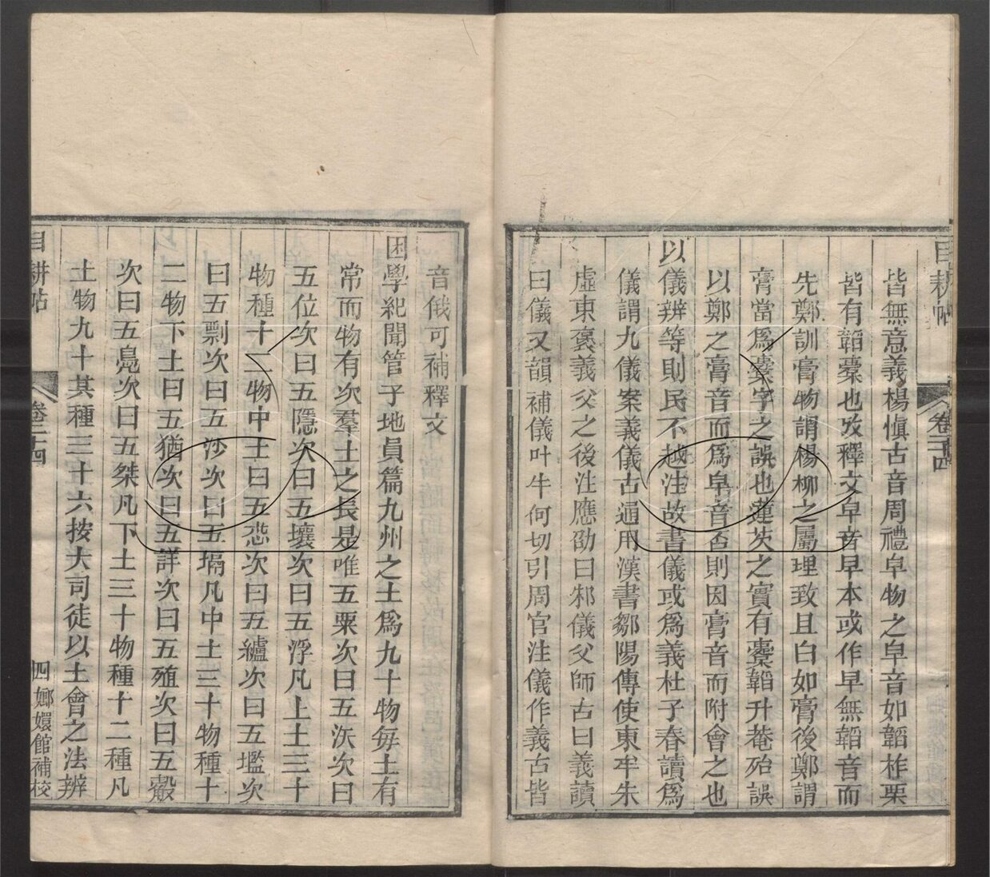 目耕帖
卷二十四
皆無意義楊愼古音周禮皁物之皁音如韜柞栗
皆有韜櫜也攷釋文皁音早本或作早無韜音而
先鄭訓膏物謂楊柳之屬理致且白如膏後鄭謂
膏當爲櫜字之誤也蓮芡之實有櫜韜升菴殆誤
以鄭之膏音而爲皁音否則因膏音而附會之也
以儀辨等則民不越注故書儀或爲義杜子春讀爲
儀謂九儀案義儀古通用漢書鄒陽傳使東牟朱
虛東褒義父之後注應劭曰邾儀父師古曰義讀
曰儀又韻補儀叶牛何切引周官注儀作義古皆
音俄可補釋文
困學紀聞管子地員篇九州之土爲九十物每土有
常而物有次羣土之長是唯五粟次曰五沃次曰
五位次曰五隱次曰五壤次曰五浮凡上土三十
物種十二物中土曰五怸次曰五纑次曰五壏次
曰五剽次曰五沙次曰五塥凡中土三十物種十
二物下土曰五猶次曰五䍧次曰五殖次曰五觳
次曰五鳧次曰五桀凡下土三十物種十二種凡
土物九十其種三十六按大司徒以土會之法辨
目耕帖
卷二十四
四
嫏嬛館補校